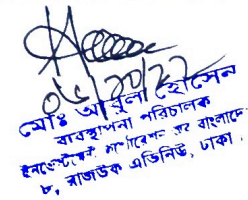 ০৬/১০/২২
মোঃ আবুল হোসেন
ব্যবস্থাপনা পরিচালক
ইনভেস্টমেন্ট কর্পোরেশন অব বাংলাদেশ
৮, রাজউক এভিনিউ, ঢাকা।